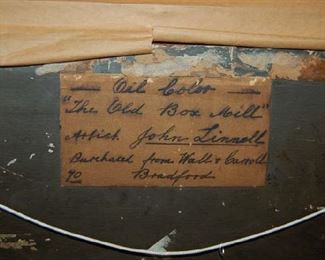 — Oil Color —
"The Old Box Mill"
Artist John Linnell
Purchased from Wall & Carroll
90 Bradford